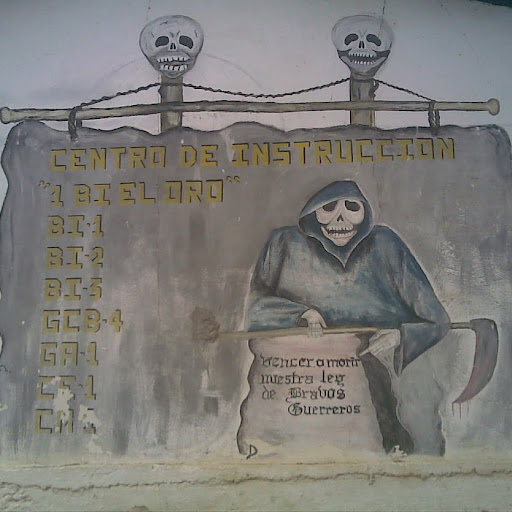 CENTRO DE INSTRUCCION
"1 BI EL ORO"
BI-1
BI-2
BI-3
GCB-4
GA-1
vencer o morir
nuestra ley
de Bravos
Guerreros